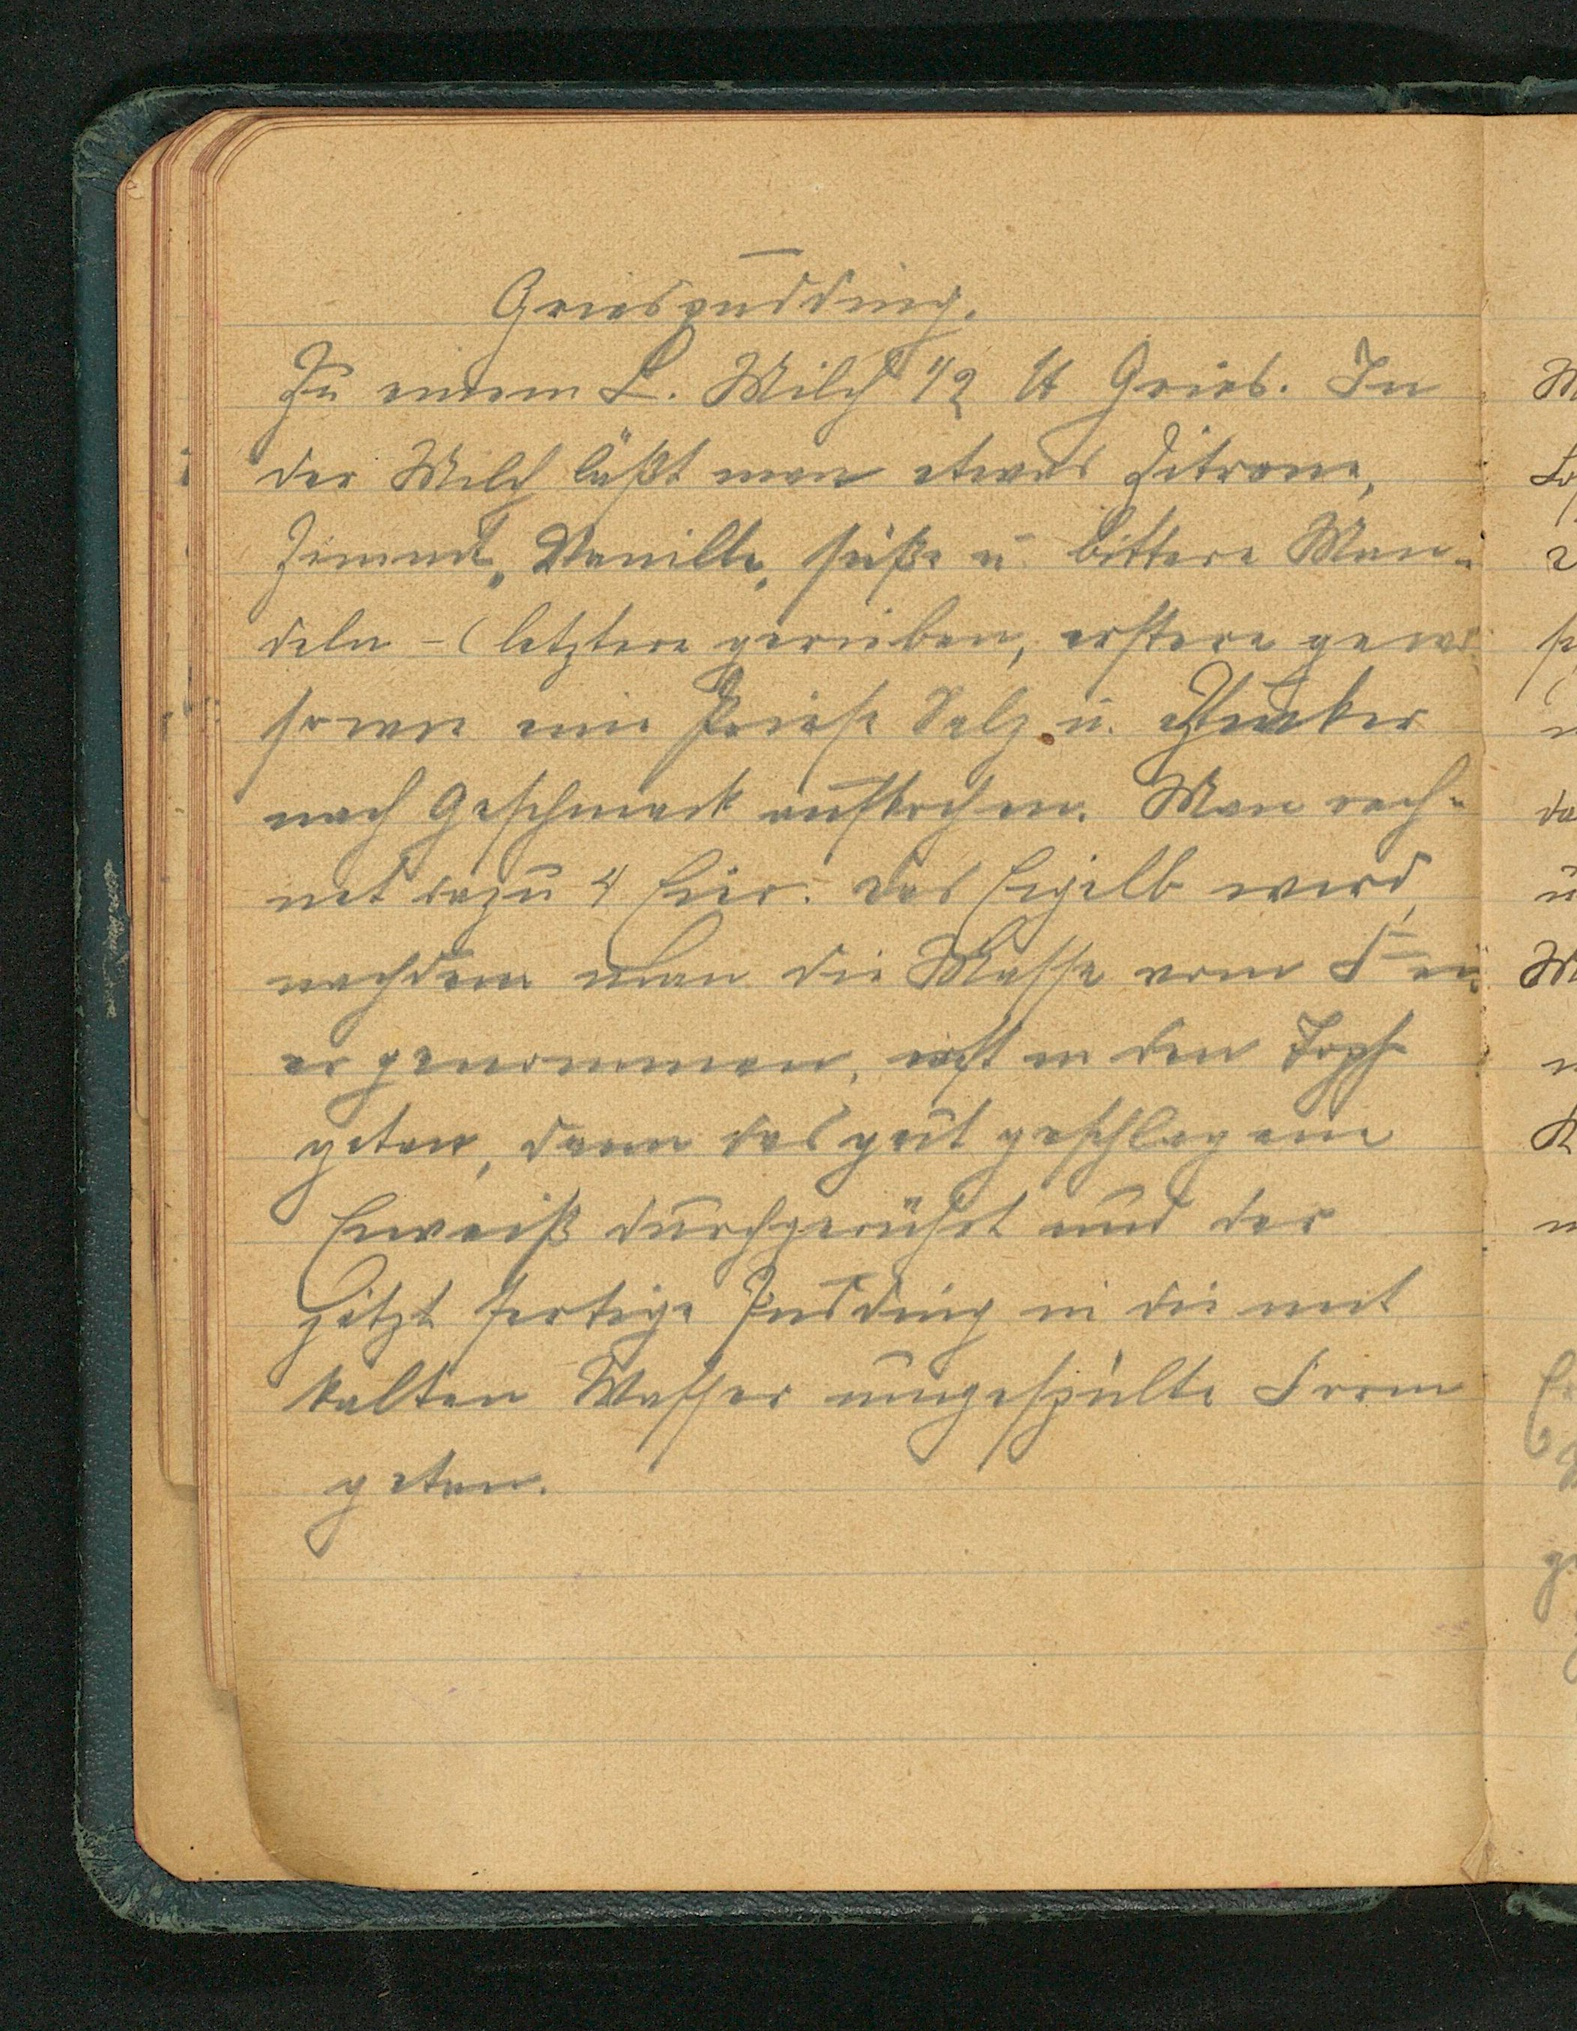 Griespudding.
Zu einem L. Milch 1/2 ℔ Gries. In
der Milch läßt man etwas Zitrone,
Zimmt, Vanille, süße u bittere Man-
deln – (letztere gerieben, erstere gewi
sowie eine Priese Salz u. Zucker
nach Geschmack aufkochen. Man rech-
net dazu 4 Eier. Das Eigelb wird,
nachdem man die Masse vom Feu
er genommen, erst in den Topf
getan, dann das gut geschlagene
Eiweiß durchgerührt und der
jetzt fertige Pudding in die mit
kalten Wasser umgespülte Form
getan.